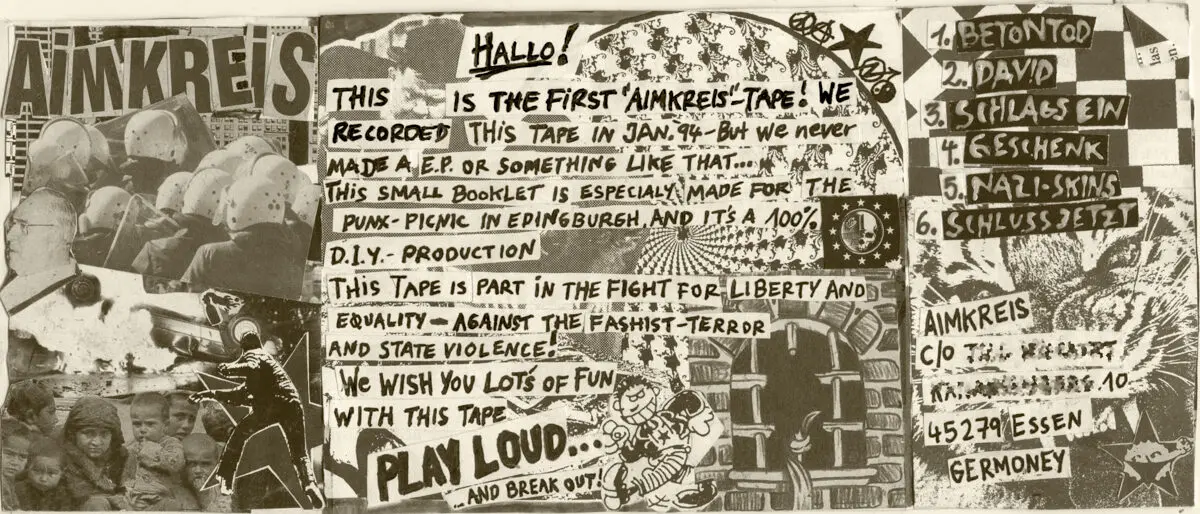 AiMKREiS
HALLO!
THIS IS THE FIRST "AIMKREIS"-TAPE! WE
RECORDED THIS TAPE IN JAN.'94-BUT WE NEVER
MADE A E.P. OR SOMETHING LIKE THAT...
THIS SMALL BOOKLET IS ESPECIALY MADE FOR THE
PUNX-PICNIC IN EDINGBURGH, AND IT'S A 100%
D.I.Y.-PRODUCTION
THIS TAPE IS PART IN THE FIGHT FOR LIBERTY AND
EQUALITY - AGAINST THE FASHIST-TERROR
AND STATE VIOLENCE!
WE WISH YOU LOT'S OF FUN
WITH THIS TAPE
PLAY LOUD...
...AND BREAK OUT!
1. BETONTOD
2. DAVID
3. SCHLAGS EIN
4. GESCHENK
5. NAZI-SKINS
6. SCHLUSS JETZT
AIMKREIS
C/O
10
45279 ESSEN
GERMONEY